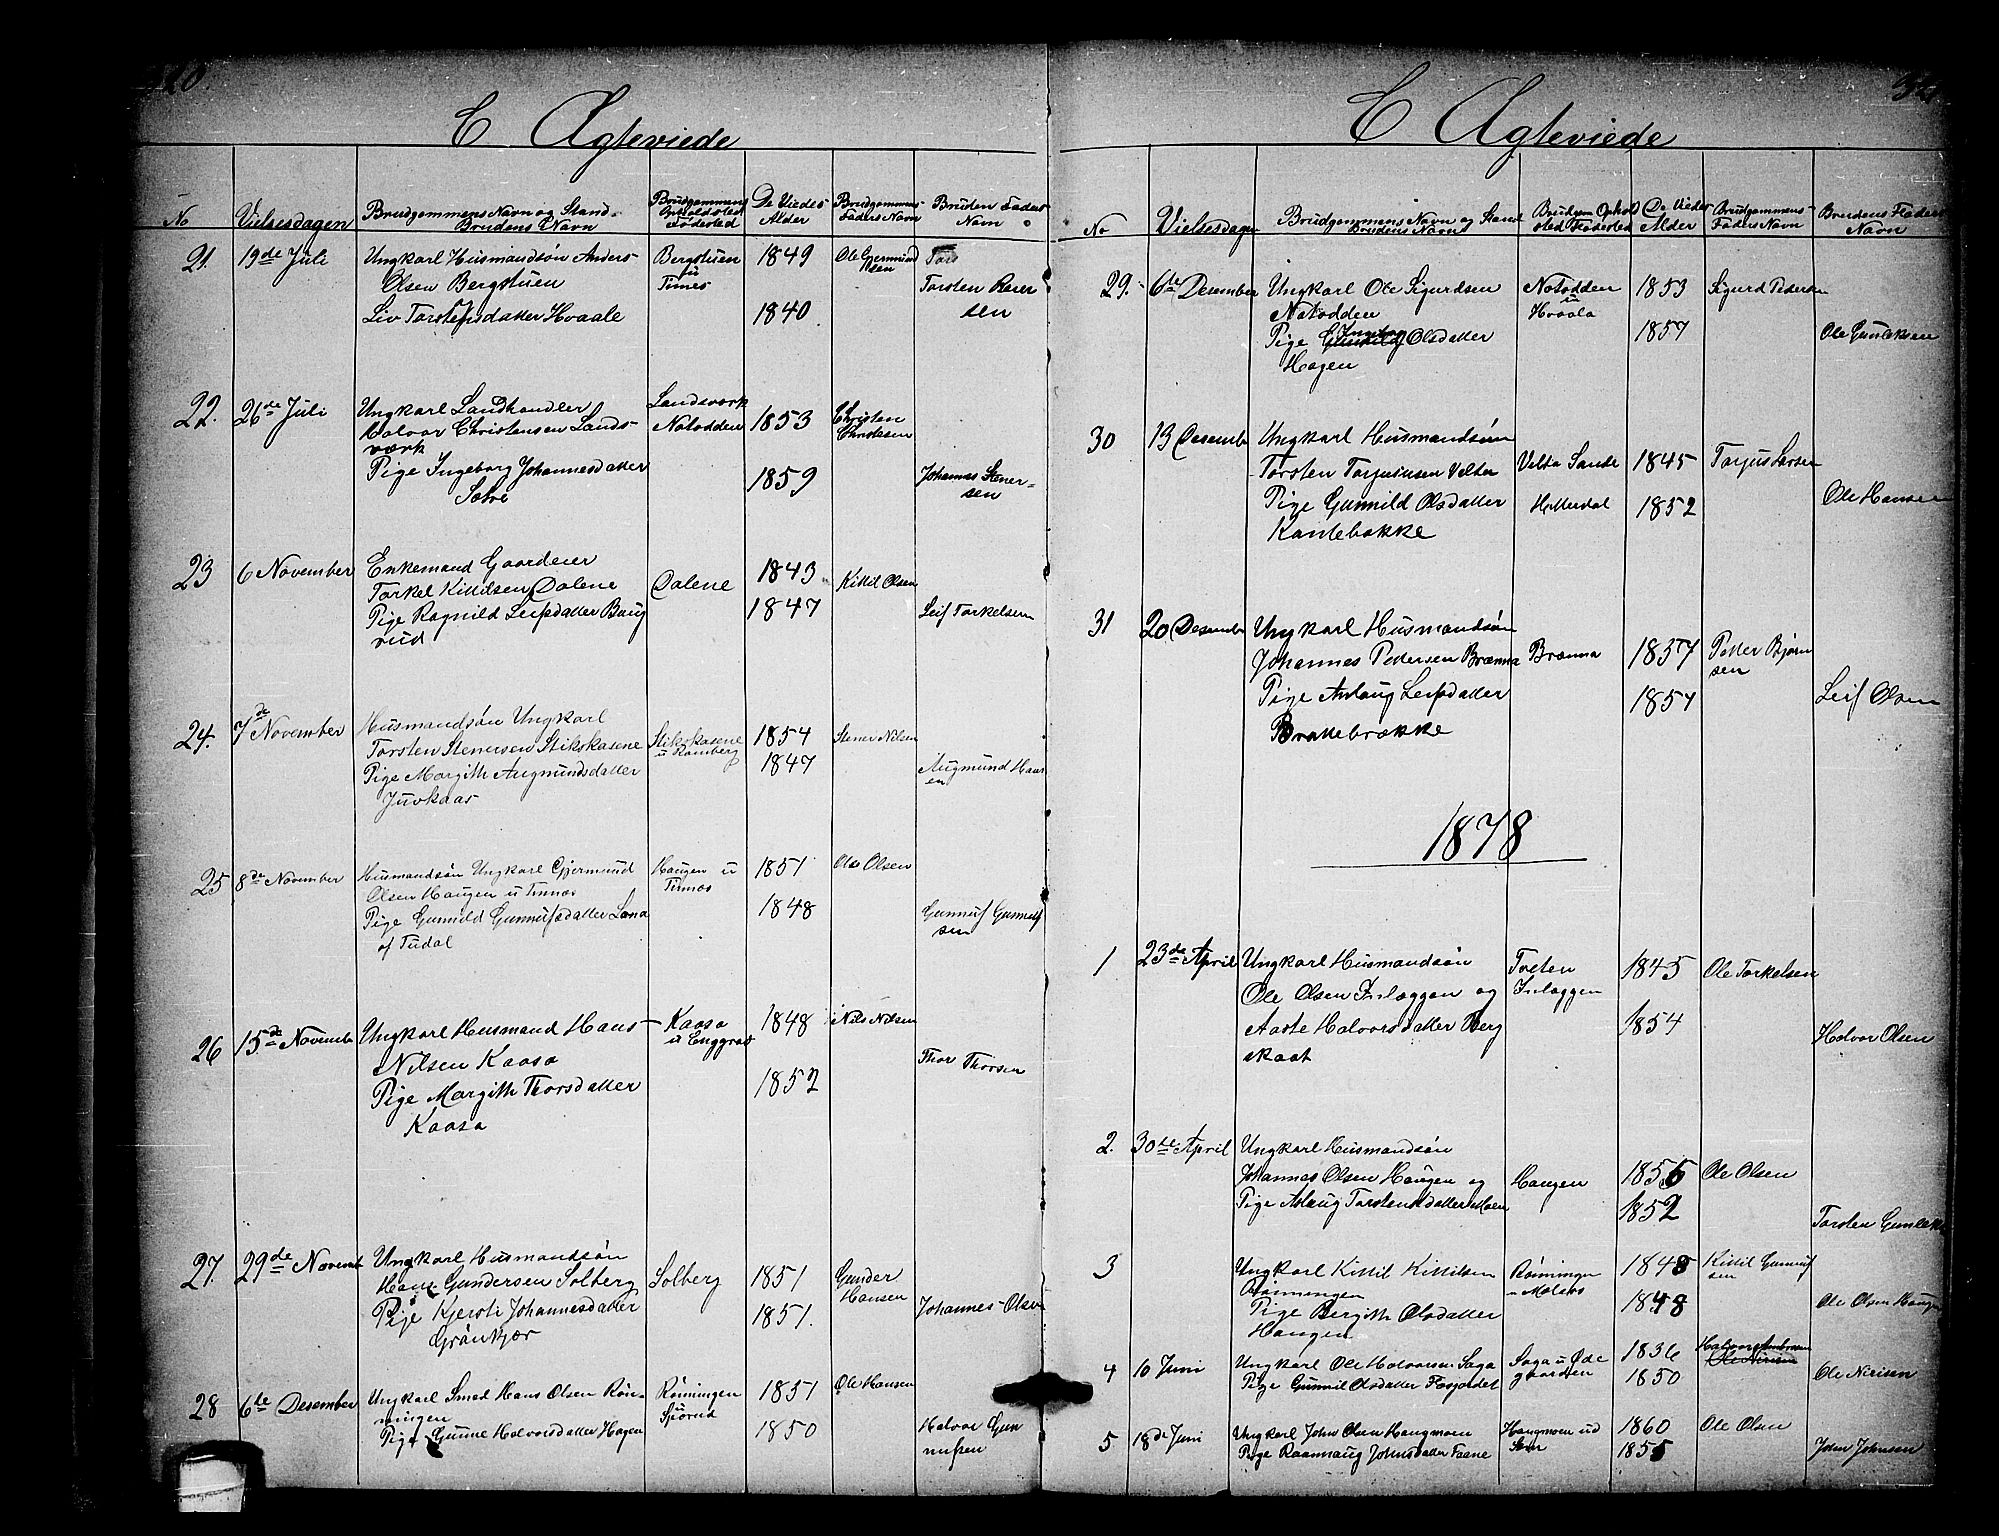 320.
C Ægteviede
No
Vielsesdagen
Brudgommens Navn og Stand
Brudens Navn
Brudgommens
Opholdsted
Födested
De Viedes
Alder
Brudgommens
Faders Navn
Bruden Faders
Navn
21. 19de Juli
Ungkarl Husmandsön Anders
Olsen Bergstuen
Liv Torstensdatter Hvaale
Bergstuen
u
Tinnes
1849
1840
Ole Gjermund
sen
Torsten
sen
22. 26de Juli
Ungkarl Landhandler
Halvor Christensen Lands-
værk
Pige Ingeborg Johannesdatter
Landsværk
Notodden
1853
1859
Christen
Christesen
Johannes Stener-
sen
23 6 November
Enkemand Gaardeier
Torkel Kittilsen Dalene
Pige Ragnild Leifsdatter Baug
rud
Dalene
1843
1847
Kittil Olsen
Leif Torkelsen
24. 7de November
Husmandsön Ungkarl
Torsten Stenersen Stikskasene
Pige Margith Augmundsdatter
Juvkaas
Stikskasene
u Ramberg
1854
1847
Stener Nilsen
Augmund Hans
en
25 8de November
Husmandsön Ungkarl Gjermund
Olsen Haugen u Tinnæs
Pige Gunnild Gunnufsdatter Lona
af Tudal
Haugen u
Tinnæs
1851
1848
Ole Olsen
Gunnuf Gunnuf
sen
26 15de Novembe
Ungkarl Husmand Hans-
Nilsen Kaasa
Pige Margith Thorsdatter
Kaasa
Kaasa
u Enggrav
1848
1852
Nils Nilsen
Thor Thorsen
27. 29de Novemb
Ungkarl Husmandsön
Hans Gundersen Solberg
Pige Kjersti Johannesdatter
Grönkjær
Solberg
1851
1851.
Gunder
Hansen
Johannes Olsen
28 6te Desember
Ungkarl Smed Hans Olsen Rön-
ningen
Pige Gunne Halvorsdatter Hagen
Rönningen
1851
1850
Ole Hansen
Halvor Gun
nufsen
C Ægteviede
No
Vielsesdagen
Brudgommens Navn og Stand
Brudens Navn
Brudgom Ophold
sted Födested
De Viedes
Alder
Brudgommens
Faders Navn
Brudens Faders
Navn
29. 6te Desember
Ungkarl Ole Sigurdsen
Notodden
Pige Gunnild Ingeborg Olsdatter
Hagen
Notodden
u
Hvaala
1853
1857
Sigurd Peders
Ole Gunleksen
30 13 Desembe
Ungkarl Husmandsön
Torsten Torjusen Velta
Pige Gunnild Olsdatter
Kantebakke
Velta Sande
Hitterdal
1845
1852
Torjus Larsen
Ole Hansen
31 20 Desembe
Ungkarl Husmandsön
Johannes Pettersen Brænna
Pige Aslaug Leifsdatter
Brattebrække
Brænna
1857
1857
Petter Björn
sen
Leif Olsen
1878
1 23de April
Ungkarl Husmandsön
Ole Olsen Inlæggen og
Aaste Halvorsdatter Berg
skaat
Tveten
Inlæggen
1845
1854
Ole Torkelsen
Halvor Olsen
2. 30te April
Ungkarl Husmandsön
Johannes Olsen Haugen og
Pige Aslaug Torstensdatter Moen
Haugen
1855
1852
Ole Olsen
Torsten Gunleks
3
Ungkarl Kittil Kittilsen
Rönningen
Pige Bergith Olsdatter
Haugen
Rönningen
1848
1848
Kittil Gunnuf
sen
Ole Olsen Haugen
4 10 Juni
Ungkarl Ole Halvorsen Saga
Pige Gunnil Olsdatter
Saga u Øde
gaarden
1836
1850
Ole Nirisen
5 18de Juni
Ungkarl John Olsen Haugmoen
Pige Raannaug Johnsdatter Faane
Haugmoen ud
1860
1855
Ole Olsen
John Johnsen